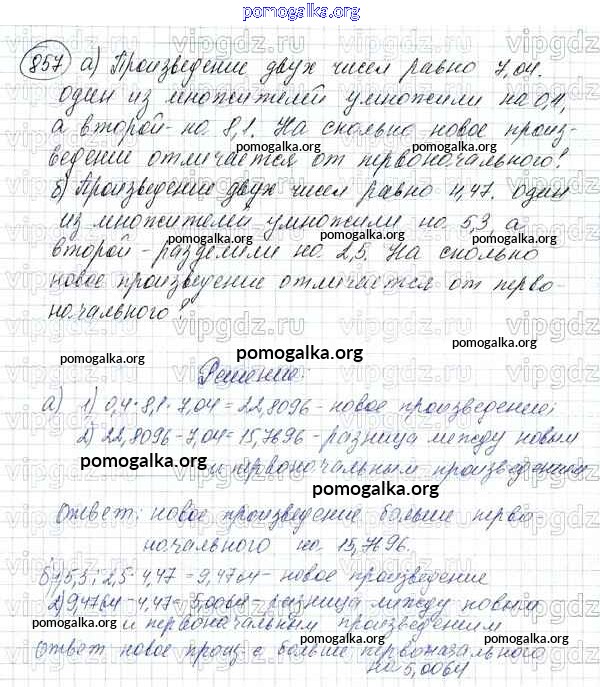 pomogalka.org
857 а) Произведение двух чисел равно 7,04.
один из множителей умножили на 0,4,
а второй - на 8,1. На сколько новое произ-
ведение отличается от первоначального?
б) Произведение двух чисел равно 4,47. один
из множителей умножили на 5,3, а
второй - разделили на 2,5. На сколько
новое произведение отличается от перво-
начального?
pomogalka.org
Решение:
а) 1) 0,4·8,1·7,04=22,8096 - новое произведение;
2) 22,8096-7,04=15,7696 - разница между новым
и первоначальным произведением
pomogalka.org
Ответ: новое произведение больше перво
начального на 15,7696.
б) 1) 5,3:2,5·4,47=9,4764 - новое произведение
2) 9,4764-4,47=5,0064 - разница между новым
и первоначальным произведением
Ответ новое произ-е больше первоначального
на 5,0064